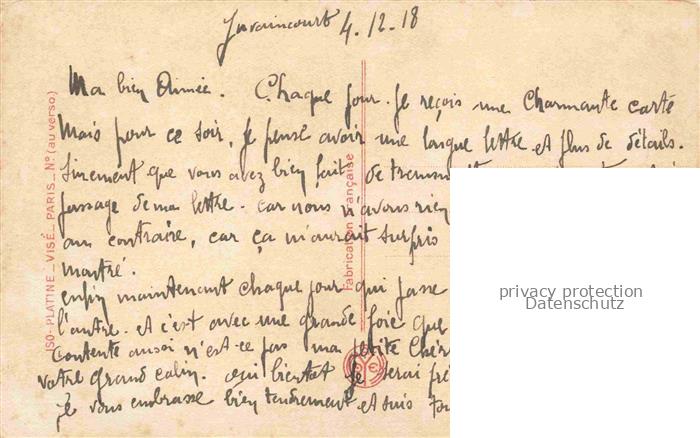 Juvaincourt 4.12.18
Ma bien Aimée. Chaque jour. Je reçois une charmante carte
Mais pour ce soir, je pense avoir une longue lettre et plus de détails.
Surement que vous avez bien fait de
passage de ma lettre. car nous n'avons rien
au contraire, car ça m'aurait surpris
montré.
enfin maintenant chaque jour qui passe
l'autre. et c'est avec une grande joie que
contente aussi n'est-ce pas ma petite
votre grand calin. oui bientot je serai
Je vous embrasse bien tendrement et suis
ISO-PLATINE_VISÉ_PARIS_Nº (au verso)
Fabrication Française
privacy protection
Datenschutz